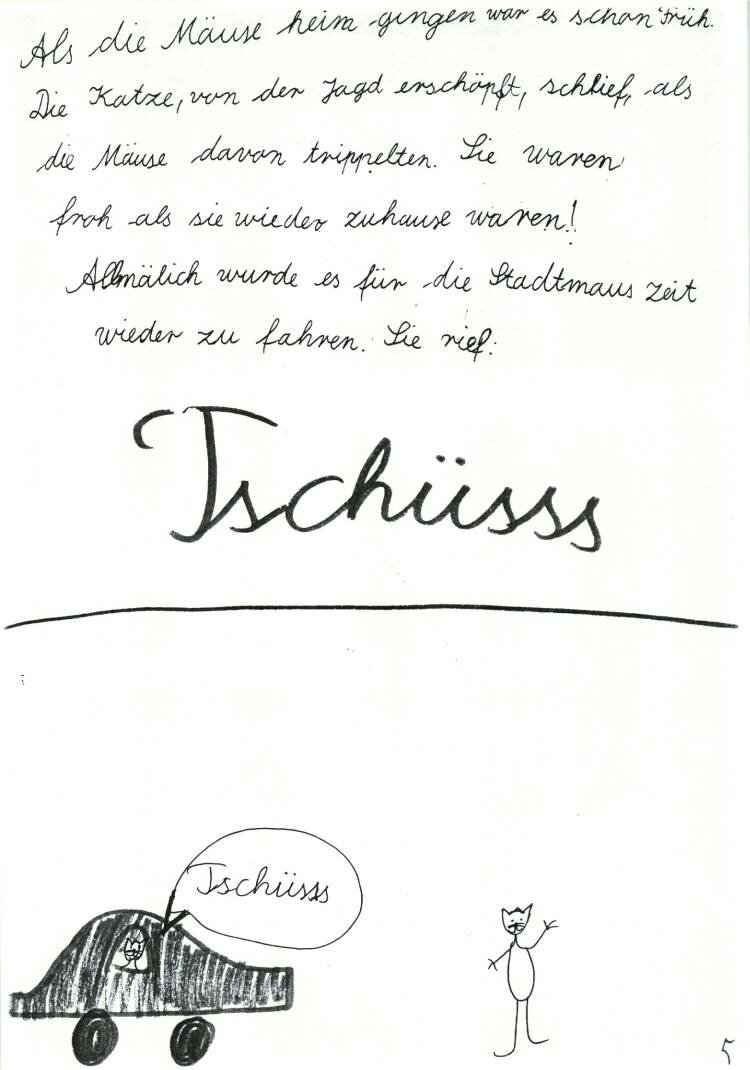 Als die Mäuse heim gingen war es schon früh.
Die Katze, von der Jagd erschöpft, schlief, als
die Mäuse davon trippelten. Sie waren
froh als sie wieder zuhause waren!
Allmälich wurde es für die Stadtmaus zeit
wieder zu fahren. Sie rief:
Tschüsss
Tschüsss
5